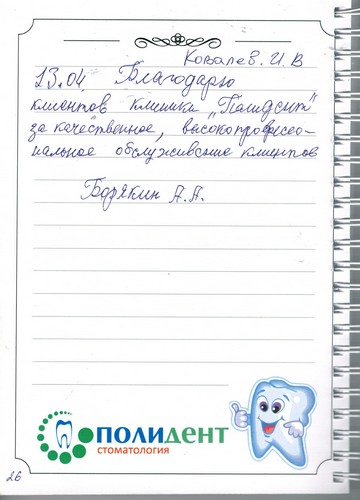 Ковалев. И. В
13.04 Благодарю
клиентов клиники „Полидент"
за качественное, высокопрофессо-
нальное обслуживание клиентов
Борякин А.А.
ПОЛИДЕНТ
СТОМАТОЛОГИЯ
26